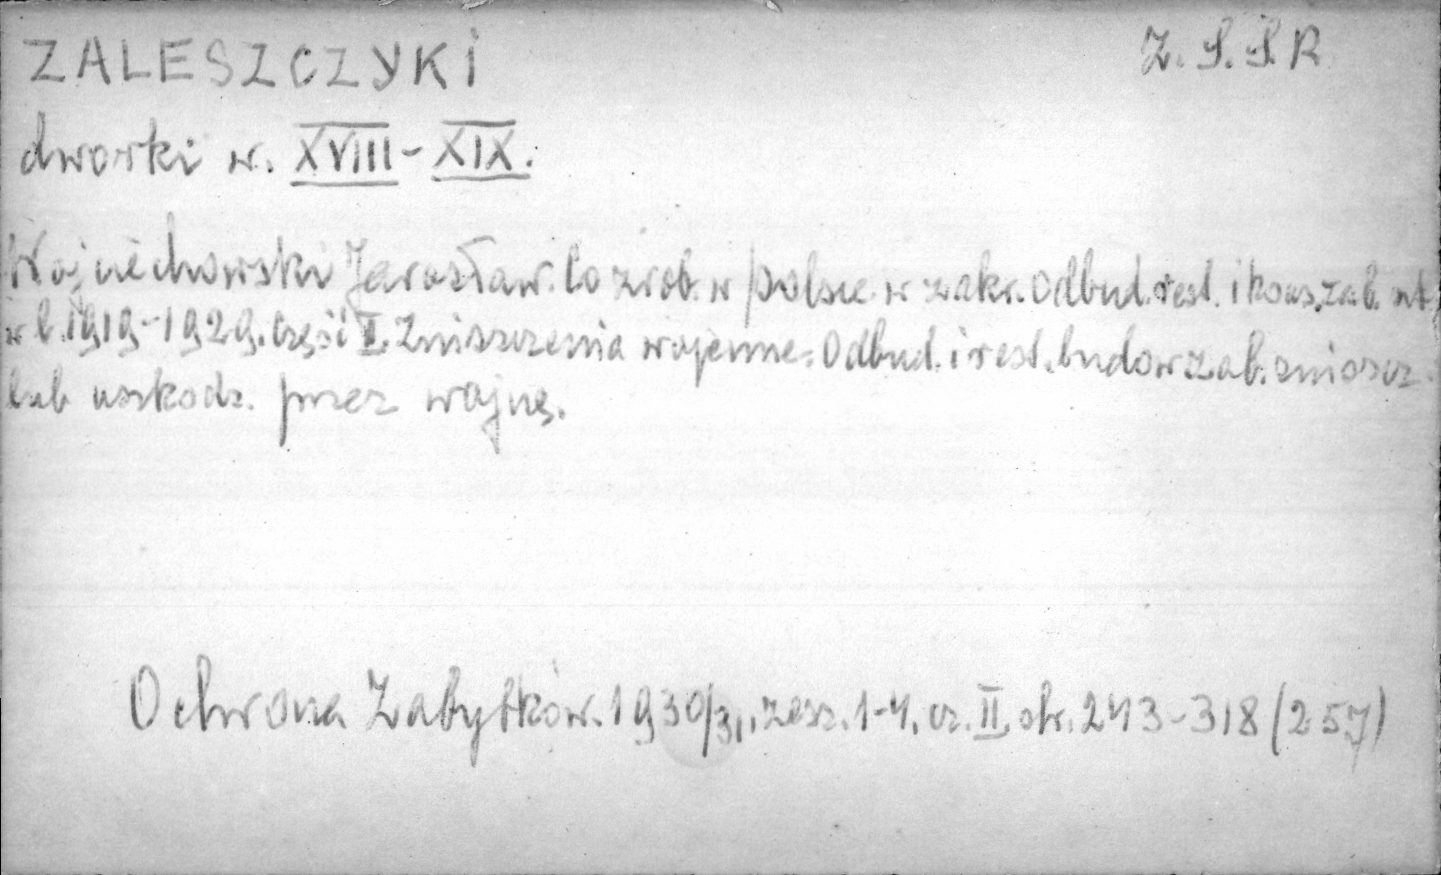 ZALESZCZYKI
Z.S.S.R
dworki w. XVIII-XIX.
Wojciechowski Jarosław. Co zrob. w Polsce w zakr. Odbud. rest. i kons. zab. szt.
w l. 1919-1929. Część II. Zniszczenia wojenne. Odbud. i rest. budow. zab. zniszcz.
lub uszkodz. przez wojnę.
Ochrona Zabytków. 1930/31, zesz. 1-4. cz. II. str. 243-318 (257)